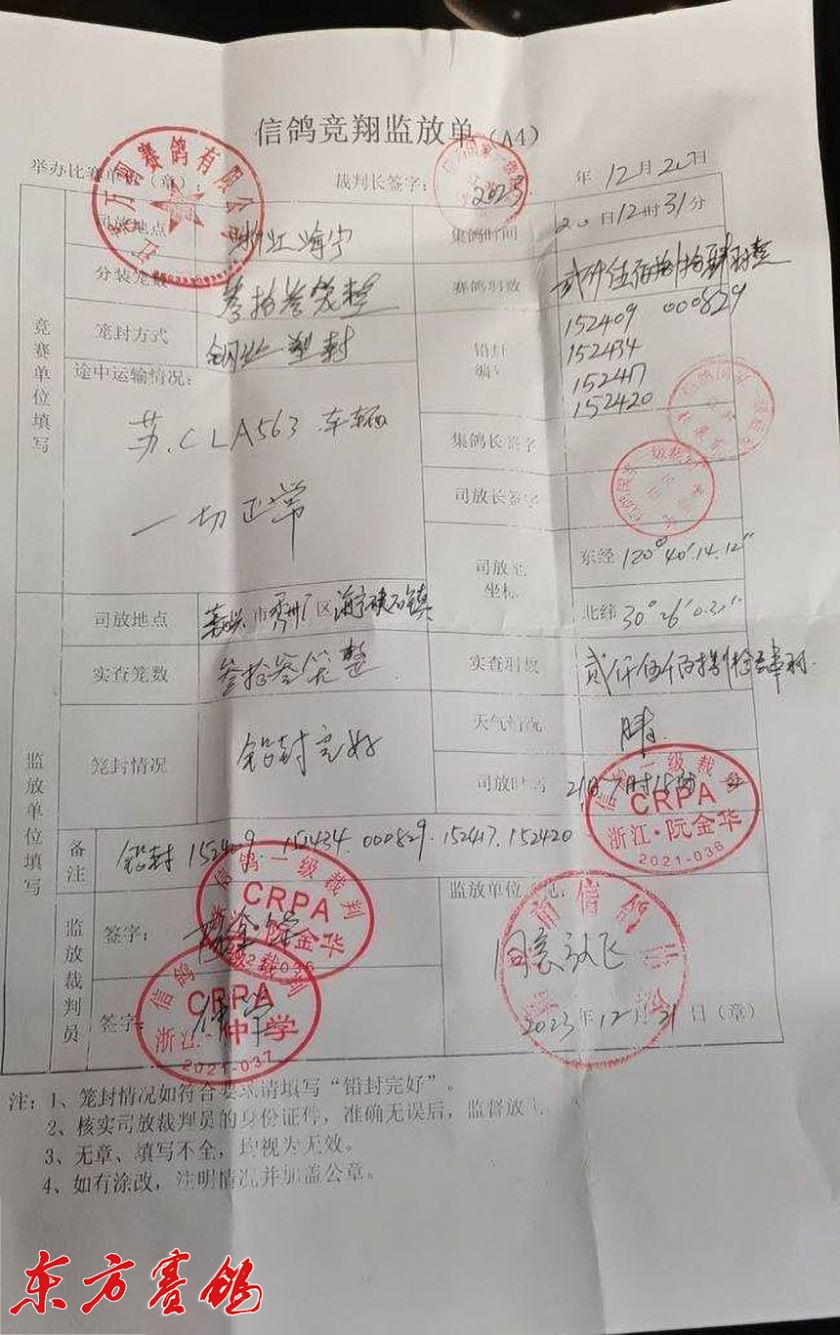 信鸽竞翔监放单（A4）
举办比赛单位（章）： 裁判长签字： 2023 年 12月20日
司放地点 浙江海宁 集鸽时间 20日12时31分
分装笼数 叁拾叁笼整 赛鸽羽数
竞赛单位填写
笼封方式 钢丝塑封 铅封编号 152409 000829
152434
152417
152420
途中运输情况：
苏.CLA563.车辆
一切正常
集鸽长签字
司放长签字
司放地坐标 东经 120°40′14.12″
北纬 30°26′0.31″
监放单位填写
司放地点 嘉兴市秀州区海宁硖石镇
实查笼数 叁拾叁笼整 实查羽数
笼封情况 铅封完好 天气情况 晴.
司放时间 21日7时15分
信鸽一级裁判
CRPA
浙江·阮金华
2021-036
备注 铅封 152409. 152434. 000829. 152417. 152420
信鸽一级裁判
CRPA
阮金华
监放裁判员
签字： 监放单位意见：
同意放飞
签字： 2023年12月21日（章）
信鸽
CRPA
浙江·
2021-037
注：1、笼封情况如符合要求请填写“铅封完好”。
2、核实司放裁判员的身份证件，准确无误后，监督放
3、无章、填写不全，均视为无效。
4、如有涂改，注明情况并加盖公章。
东方赛鸽